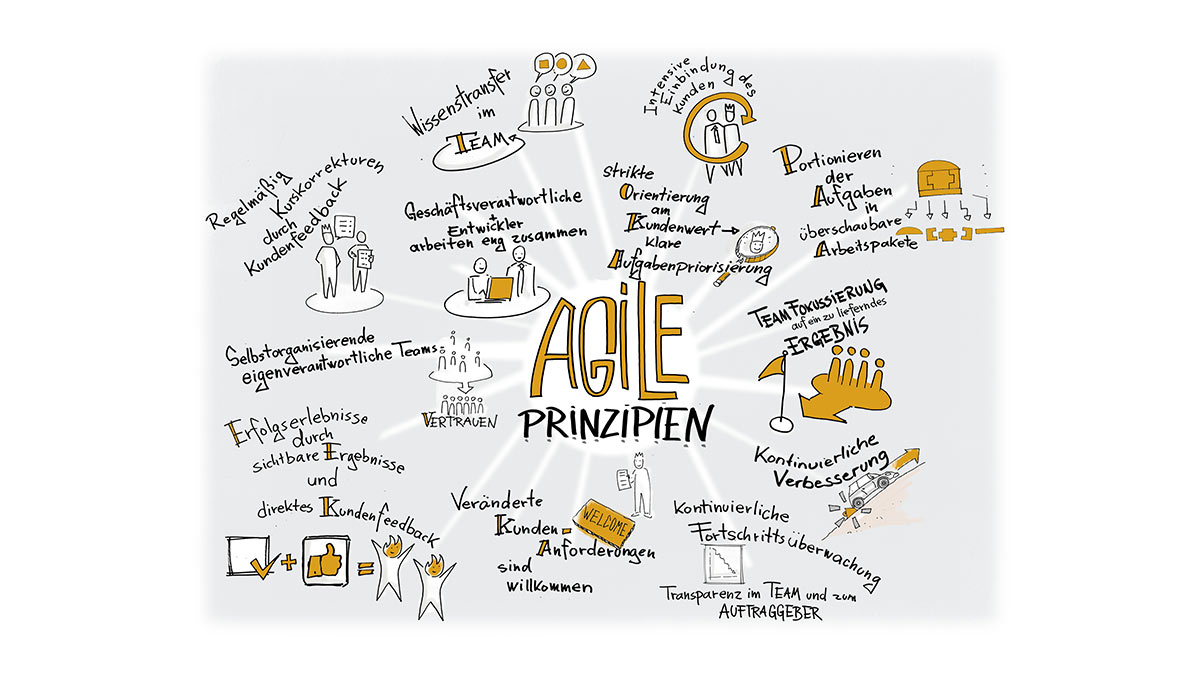 Wissenstransfer
im
TEAM
Intensive
Einbindung des
Kunden
Portionieren
der
Aufgaben
in
überschaubare
Arbeitspakete
Regelmäßig
Kurskorrekturen
durch
Kundenfeedback
Geschäftsverantwortliche
+
Entwickler
arbeiten eng zusammen
strikte
Orientierung
am
Kundenwert
klare
Aufgabenpriorisierung
TEAMFOKUSSIERUNG
auf ein zu lieferndes
ERGEBNIS
AGILE
PRINZIPIEN
Selbstorganisierende
eigenverantwortliche Teams
VERTRAUEN
Erfolgserlebnisse
durch
sichtbare Ergebnisse
und
direktes Kundenfeedback
+ =
Veränderte
Kunden-
Anforderungen
sind
willkommen
WELCOME
Kontinuierliche
Verbesserung
Kontinuierliche
Fortschrittsüberwachung
Transparenz im TEAM und zum
AUFTRAGGEBER